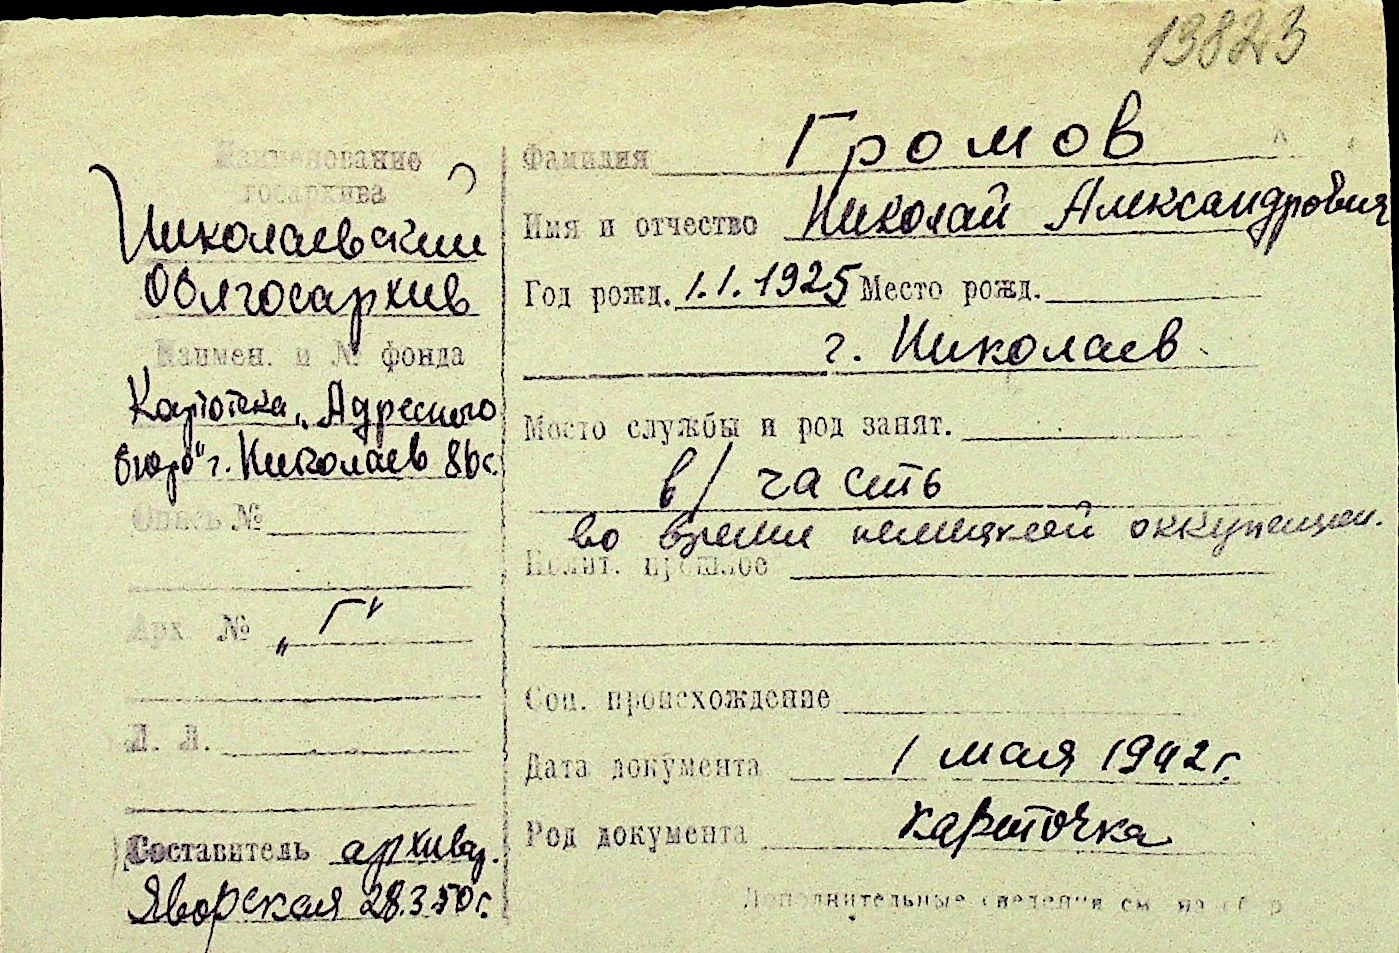 13823
Наименование
госархива
Николаевский
Облгосархив
Наимен. и № фонда
Картотека „Адресного
бюро" г. Николаев 86с.
Опись №
Арх № „Г"
Л. Л.
Составитель архивар.
Яворская 28.3.50г.
Фамилия Громов
Имя и отчество Николай Александрович
Год рожд. 1.1.1925 Место рожд.
г. Николаев
Место службы и род занят.
в/часть
во время немецкой оккупации.
Полит. прошлое
Соц. происхождение
Дата документа 1 мая 1942г.
Род документа карточка
Дополнительные сведения см. на обор